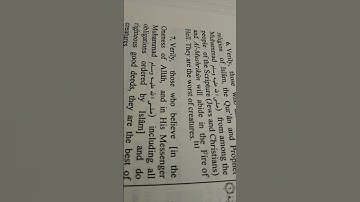 6. Verily, those
religion of Islâm, the Qur'ân and Prophet
Muhammad صلى الله عليه وسلم from among the
people of the Scripture (Jews and Christians)
and Al-Mushrikûn will abide in the Fire of
Hell. They are the worst of creatures.
7. Verily, those who believe [in the
Oneness of Allâh, and in His Messenger
Muhammad صلى الله عليه وسلم including all
obligations ordered by Islâm] and do
righteous good deeds, they are the best of
creatures.